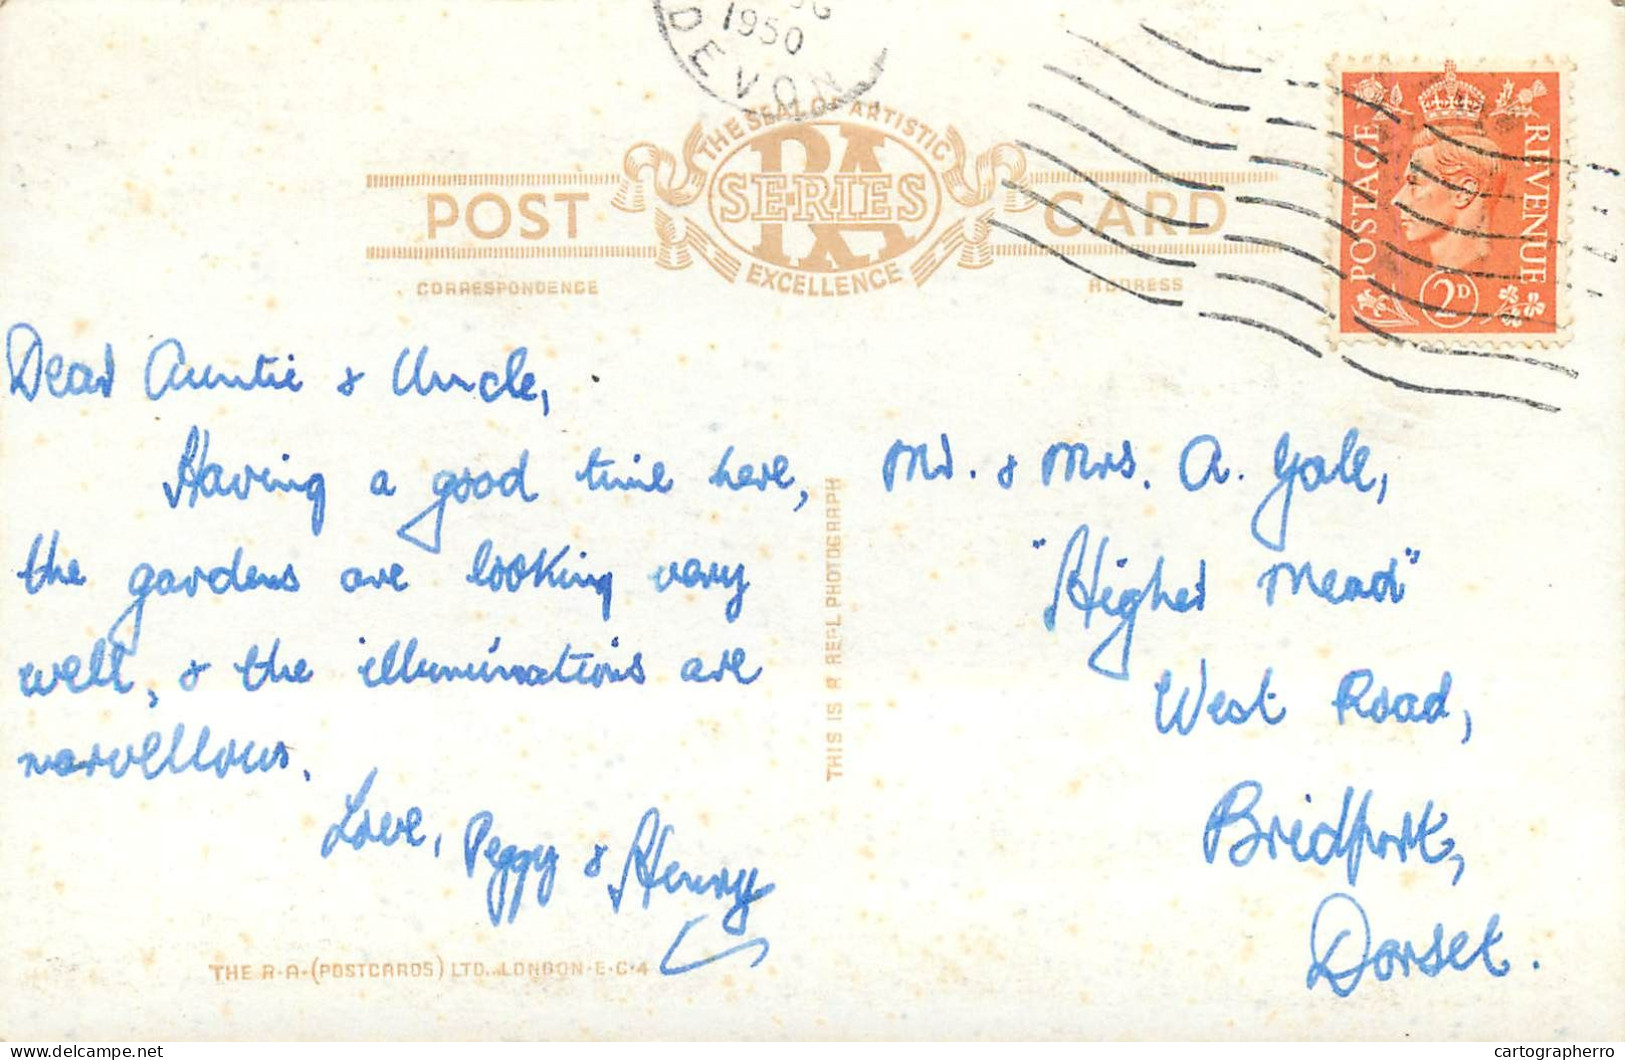 1950
DEVON
POSTAGE
REVENUE
2D
THE SEAL OF ARTISTIC
RA
SERIES
EXCELLENCE
POST CARD
CORRESPONDENCE
ADDRESS
Dear Auntie & Uncle,
Having a good time here,
the gardens are looking very
well, & the illuminations are
marvellous.
Love, Peggy & Henry
THIS IS A REAL PHOTOGRAPH
Mr. & Mrs. A. Gale,
"Higher Mead"
West Road,
Bridport,
Dorset.
THE R·A·(POSTCARDS) LTD., LONDON·E·C·4
delcampe.net
cartographerro